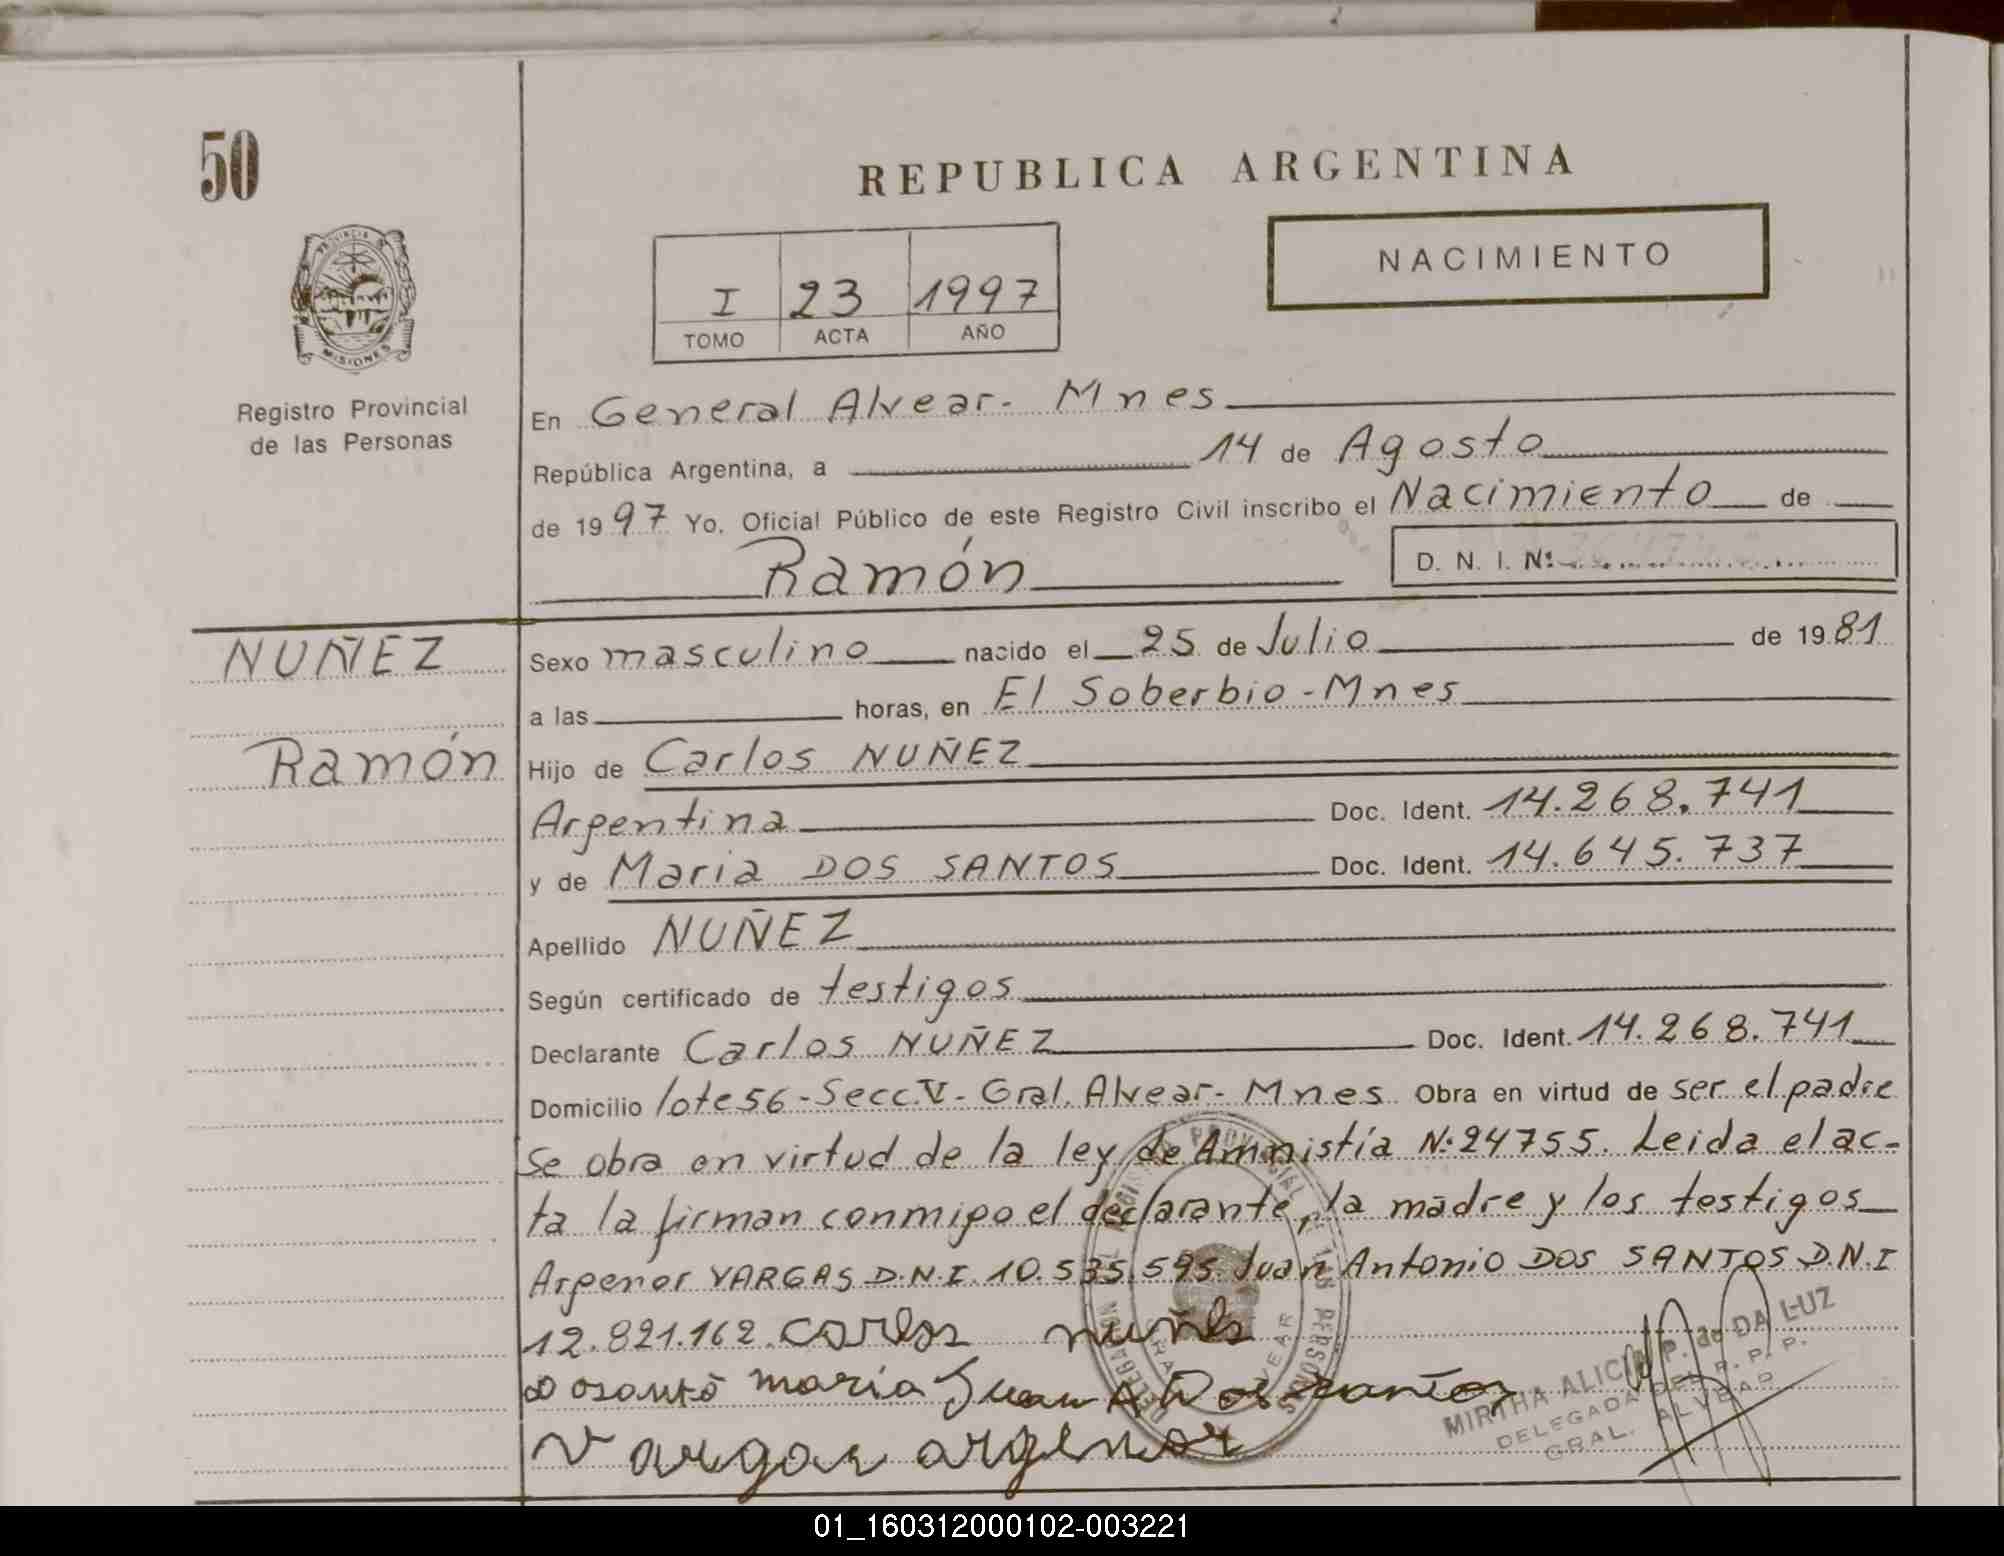 50
REPUBLICA ARGENTINA
NACIMIENTO
I 23 1997
TOMO ACTA AÑO
PROVINCIA DE
MISIONES
Registro Provincial
de las Personas
En General Alvear - Mnes
República Argentina, a 14 de Agosto
de 1997 Yo, Oficial Público de este Registro Civil inscribo el Nacimiento de
Ramón
D. N. I. Nº
NUÑEZ
Ramón
Sexo masculino nacido el 25 de Julio de 1981
a las horas, en El Soberbio - Mnes
Hijo de Carlos NUÑEZ
Argentina Doc. Ident. 14.268.741
y de Maria DOS SANTOS Doc. Ident. 14.645.737
Apellido NUÑEZ
Según certificado de testigos
Declarante Carlos NUÑEZ Doc. Ident. 14.268.741
Domicilio lote 56 - Secc. V - Gral. Alvear - Mnes Obra en virtud de ser el padre
Se obra en virtud de la ley de Amnistía Nº 24755. Leida el ac-
ta la firman conmigo el declarante, la madre y los testigos
Argenor VARGAS D.N.I. 10.535.595. Juan Antonio DOS SANTOS D.N.I
12.821.162. Carlos nuñes
maria Juan A Dos santos
Vargas argenor
MIRTHA ALICIA P. de DA LUZ
DELEGADA DEL R. P. P.
GRAL. ALVEAR
01_160312000102-003221